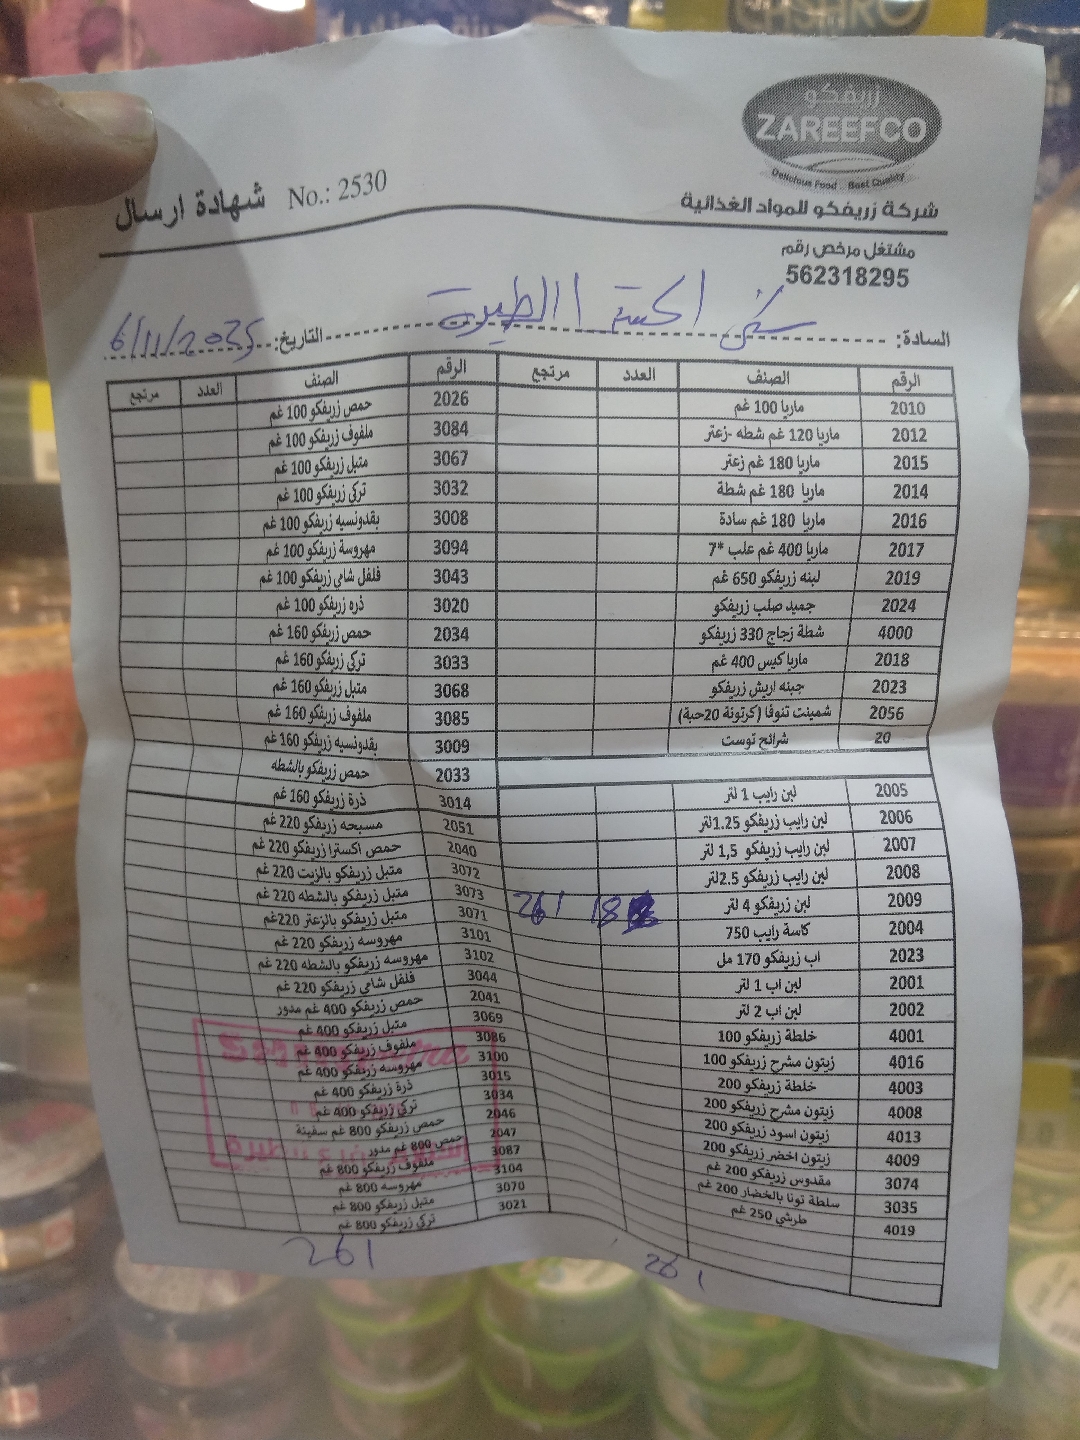 زريفكو
ZAREEFCO
Delicious Food .. Best Quality
شركة زريفكو للمواد الغذائية
شهادة ارسال No.: 2530
مشتغل مرخص رقم
562318295
السادة: الطيرة التاريخ: 6/11/2025
الرقم الصنف العدد مرتجع الرقم الصنف العدد مرتجع
2010 ماريا 100 غم 2026 حمص زريفكو 100 غم
2012 ماريا 120 غم شطه -زعتر 3084 ملفوف زريفكو 100 غم
2015 ماريا 180 غم زعتر 3067 متبل زريفكو 100 غم
2014 ماريا 180 غم شطة 3032 تركي زريفكو 100 غم
2016 ماريا 180 غم سادة 3008 بقدونسيه زريفكو 100 غم
2017 ماريا 400 غم علب *7 3094 مهروسة زريفكو 100 غم
2019 لبنه زريفكو 650 غم 3043 فلفل شامي زريفكو 100 غم
2024 جميد صلب زريفكو 3020 ذره زريفكو 100 غم
4000 شطة زجاج 330 زريفكو 2034 حمص زريفكو 160 غم
2018 ماريا كيس 400 غم 3033 تركي زريفكو 160 غم
2023 جبنه اريش زريفكو 3068 متبل زريفكو 160 غم
2056 شمينت تنوفا (كرتونة 20حبة) 3085 ملفوف زريفكو 160 غم
20 شرائح توست 3009 بقدونسيه زريفكو 160 غم
2033 حمص زريفكو بالشطه
2005 لبن رايب 1 لتر 3014 ذرة زريفكو 160 غم
2006 لبن رايب زريفكو 1.25لتر 2051 مسبحه زريفكو 220 غم
2007 لبن رايب زريفكو 1,5 لتر 2040 حمص اكسترا زريفكو 220 غم
2008 لبن رايب زريفكو 2.5لتر 3072 متبل زريفكو بالزيت 220 غم
2009 لبن زريفكو 4 لتر 18 261 3073 متبل زريفكو بالشطه 220 غم
2004 كاسة رايب 750 3071 متبل زريفكو بالزعتر 220غم
2023 اب زريفكو 170 مل 3101 مهروسه زريفكو 220 غم
2001 لبن اب 1 لتر 3102 مهروسه زريفكو بالشطه 220 غم
2002 لبن اب 2 لتر 3044 فلفل شامي زريفكو 220 غم
4001 خلطة زريفكو 100 2041 حمص زريفكو 400 غم مدور
4016 زيتون مشرح زريفكو 100 3069 متبل زريفكو 400 غم
4003 خلطة زريفكو 200 3086 ملفوف زريفكو 400 غم
4008 زيتون مشرح زريفكو 200 3100 مهروسه زريفكو 400 غم
4013 زيتون اسود زريفكو 200 3015 ذرة زريفكو 400 غم
4009 زيتون اخضر زريفكو 200 3034 تركي زريفكو 400 غم
3074 مقدوس زريفكو 200 غم 2046 حمص زريفكو 800 غم سفينة
3035 سلطة تونا بالخضار 200 غم 2047 حمص 800 غم مدور
4019 طرشي 250 غم 3087 ملفوف زريفكو 800 غم
3104 مهروسه 800 غم
3070 متبل زريفكو 800 غم
3021 تركي زريفكو 800 غم
261 261